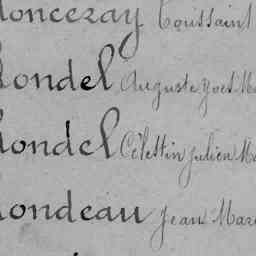 oncezay Toussaint
ondel Auguste Yves M
ondel Célestin Julien M
ondeau Jean Mar